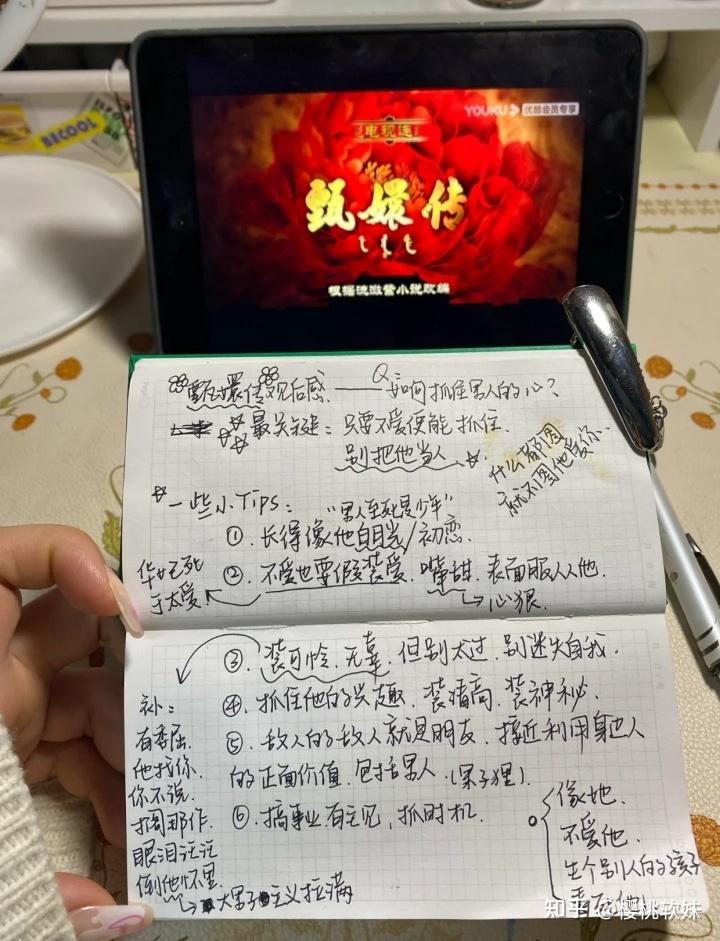 BECOOL
YOUKU 优酷会员专享
电视连
甄嬛传
根据流潋紫小说改编
甄嬛传观后感 —— Q 如何抓住男人的心?
最关键: 只要不爱便能抓住.
别把他当人
什么都图
就不图他爱你..
一些小Tips: "男人至死是少年"
①. 长得像他白月光/初恋.
②. 不爱也要假装爱. 嘴甜. 表面服从他.
→心狠.
华妃死
于太爱.
③. 装可怜. 无辜. 但别太过. 别迷失自我.
④. 抓住他的兴趣. 装清高. 装神秘.
⑤. 敌人的敌人就是朋友. 接近利用身边人
的正面价值. 包括男人. (果子狸).
⑥. 搞事业有主见, 抓时机.
补:
有委屈.
他找你.
你不说.
搁那作.
眼泪汪汪
倒他怀里.
→大男子主义拉满
像她.
不爱他.
生个别人的孩子
知乎 @樱桃软妹